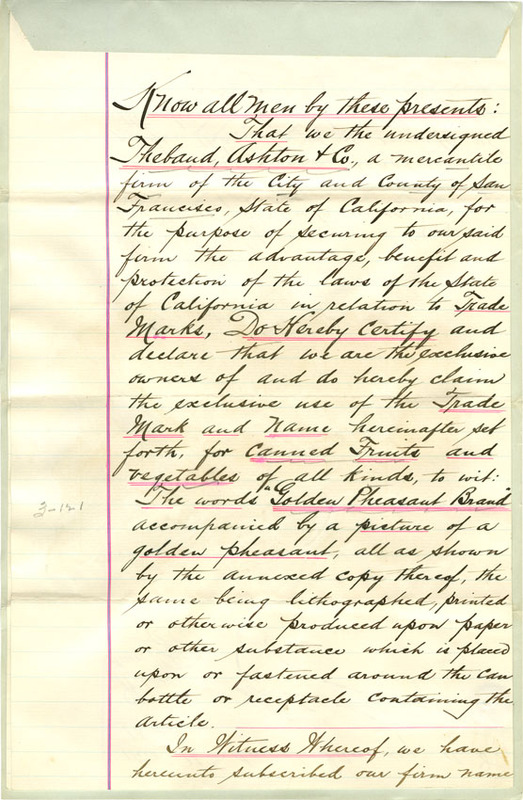 Know all men by these presents:
That we the undersigned
Thebaud, Ashton & Co., a mercantile
firm of the City and County of San
Francisco, State of California, for
the purpose of securing to our said
firm the advantage, benefit and
protection of the laws of the State
of California in relation to Trade
Marks, Do Hereby Certify and
declare that we are the exclusive
owners of and do hereby claim
the exclusive use of the Trade
Mark and Name hereinafter set
forth, for Canned Fruits and
vegetables of all kinds, to wit:
The words "Golden Pheasant Brand"
3-121
accompanied by a picture of a
golden pheasant, all as shown
by the annexed copy thereof, the
same being lithographed, printed
or otherwise produced upon paper
or other substance which is placed
upon or fastened around the can
bottle or receptacle containing the
article.
In Witness Whereof, we have
hereunto subscribed our firm name